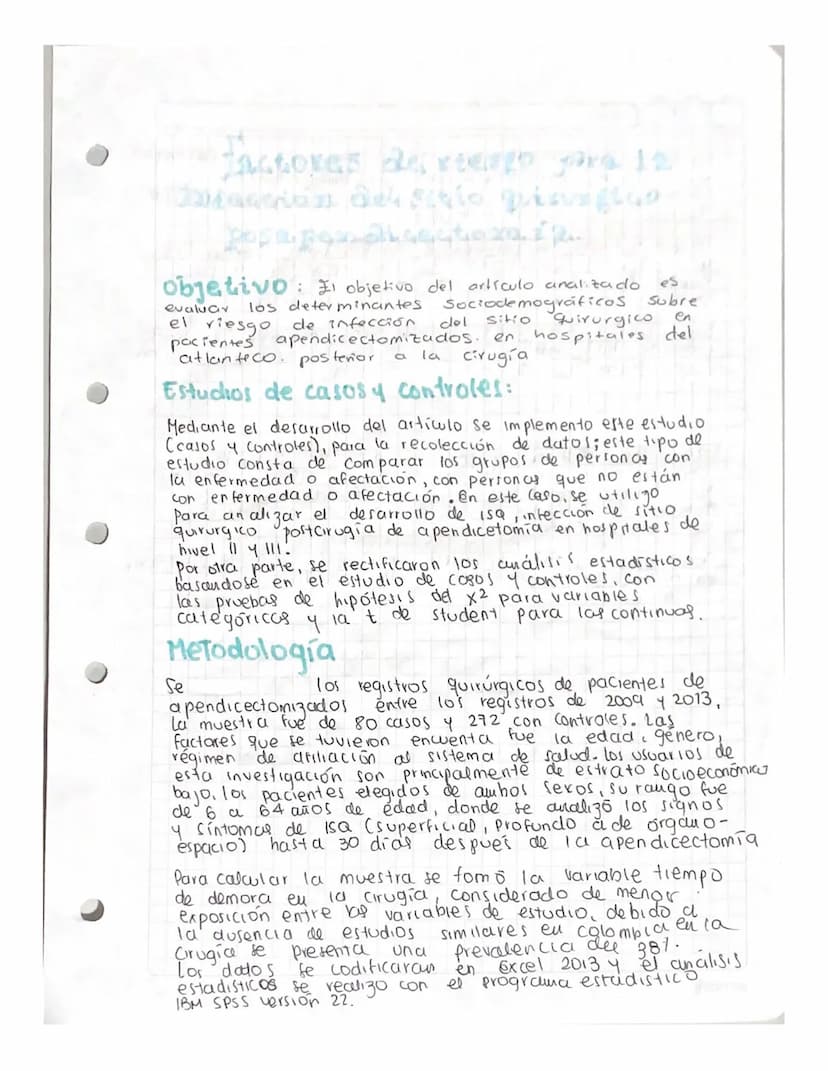 Factores de riesgo para la
infección del sitio quirurgico
posapendicectomía
objetivo: El objetivo del artículo analizado es
evaluar los determinantes Sociodemográficos Sobre
el riesgo de infección del sitio quirurgico en
pacientes apendicectomizados. en hospitales del
atlanteco. posterior a la cirugía
Estudios de casos y controles:
Mediante el desarrollo del artículo se implemento este estudio
(casos y controles), para la recolección de datos; este tipo de
estudio consta de comparar los grupos de personas con
la enfermedad o afectación, con personas que no están
con enfermedad o afectación. en este caso, se utilizo
para analizar el desarrollo de ISQ, infección de sitio
quirurgico postcirugía de apendicetomía en hospitales de
nivel II y III.
Por otra parte, se rectificaron los análisis estadísticos
basandose en el estudio de casos y controles, con
las pruebas de hipótesis del x² para variables
categóricas y la t de student para las continuas.
Metodología
Se los registros quirúrgicos de pacientes de
apendicectomizados entre los registros de 2009 y 2013,
la muestra fue de 80 casos y 272 con controles. Las
factores que se tuvieron encuenta fue la edad, género,
régimen de afiliación al sistema de salud. los usuarios de
esta investigación son principalmente de estrato socioeconómico
bajo, los pacientes elegidos de ambos sexos, su rango fue
de 6 a 64 años de edad, donde se analizó los signos
y síntomas de ISQ (superficial, profundo o de órgano-
espacio) hasta 30 días después de la apendicectomía
Para calcular la muestra se tomó la variable tiempo
de demora en la cirugía, considerado de menor
exposición entre las variables de estudio, debido a
la ausencia de estudios similares en colombia en la
cirugía se presenta una prevalencia del 38%.
Los datos se codificaran en Excel 2013 y el análisis
estadísticos se realizo con el programa estadistico
IBM SPSS versión 22.